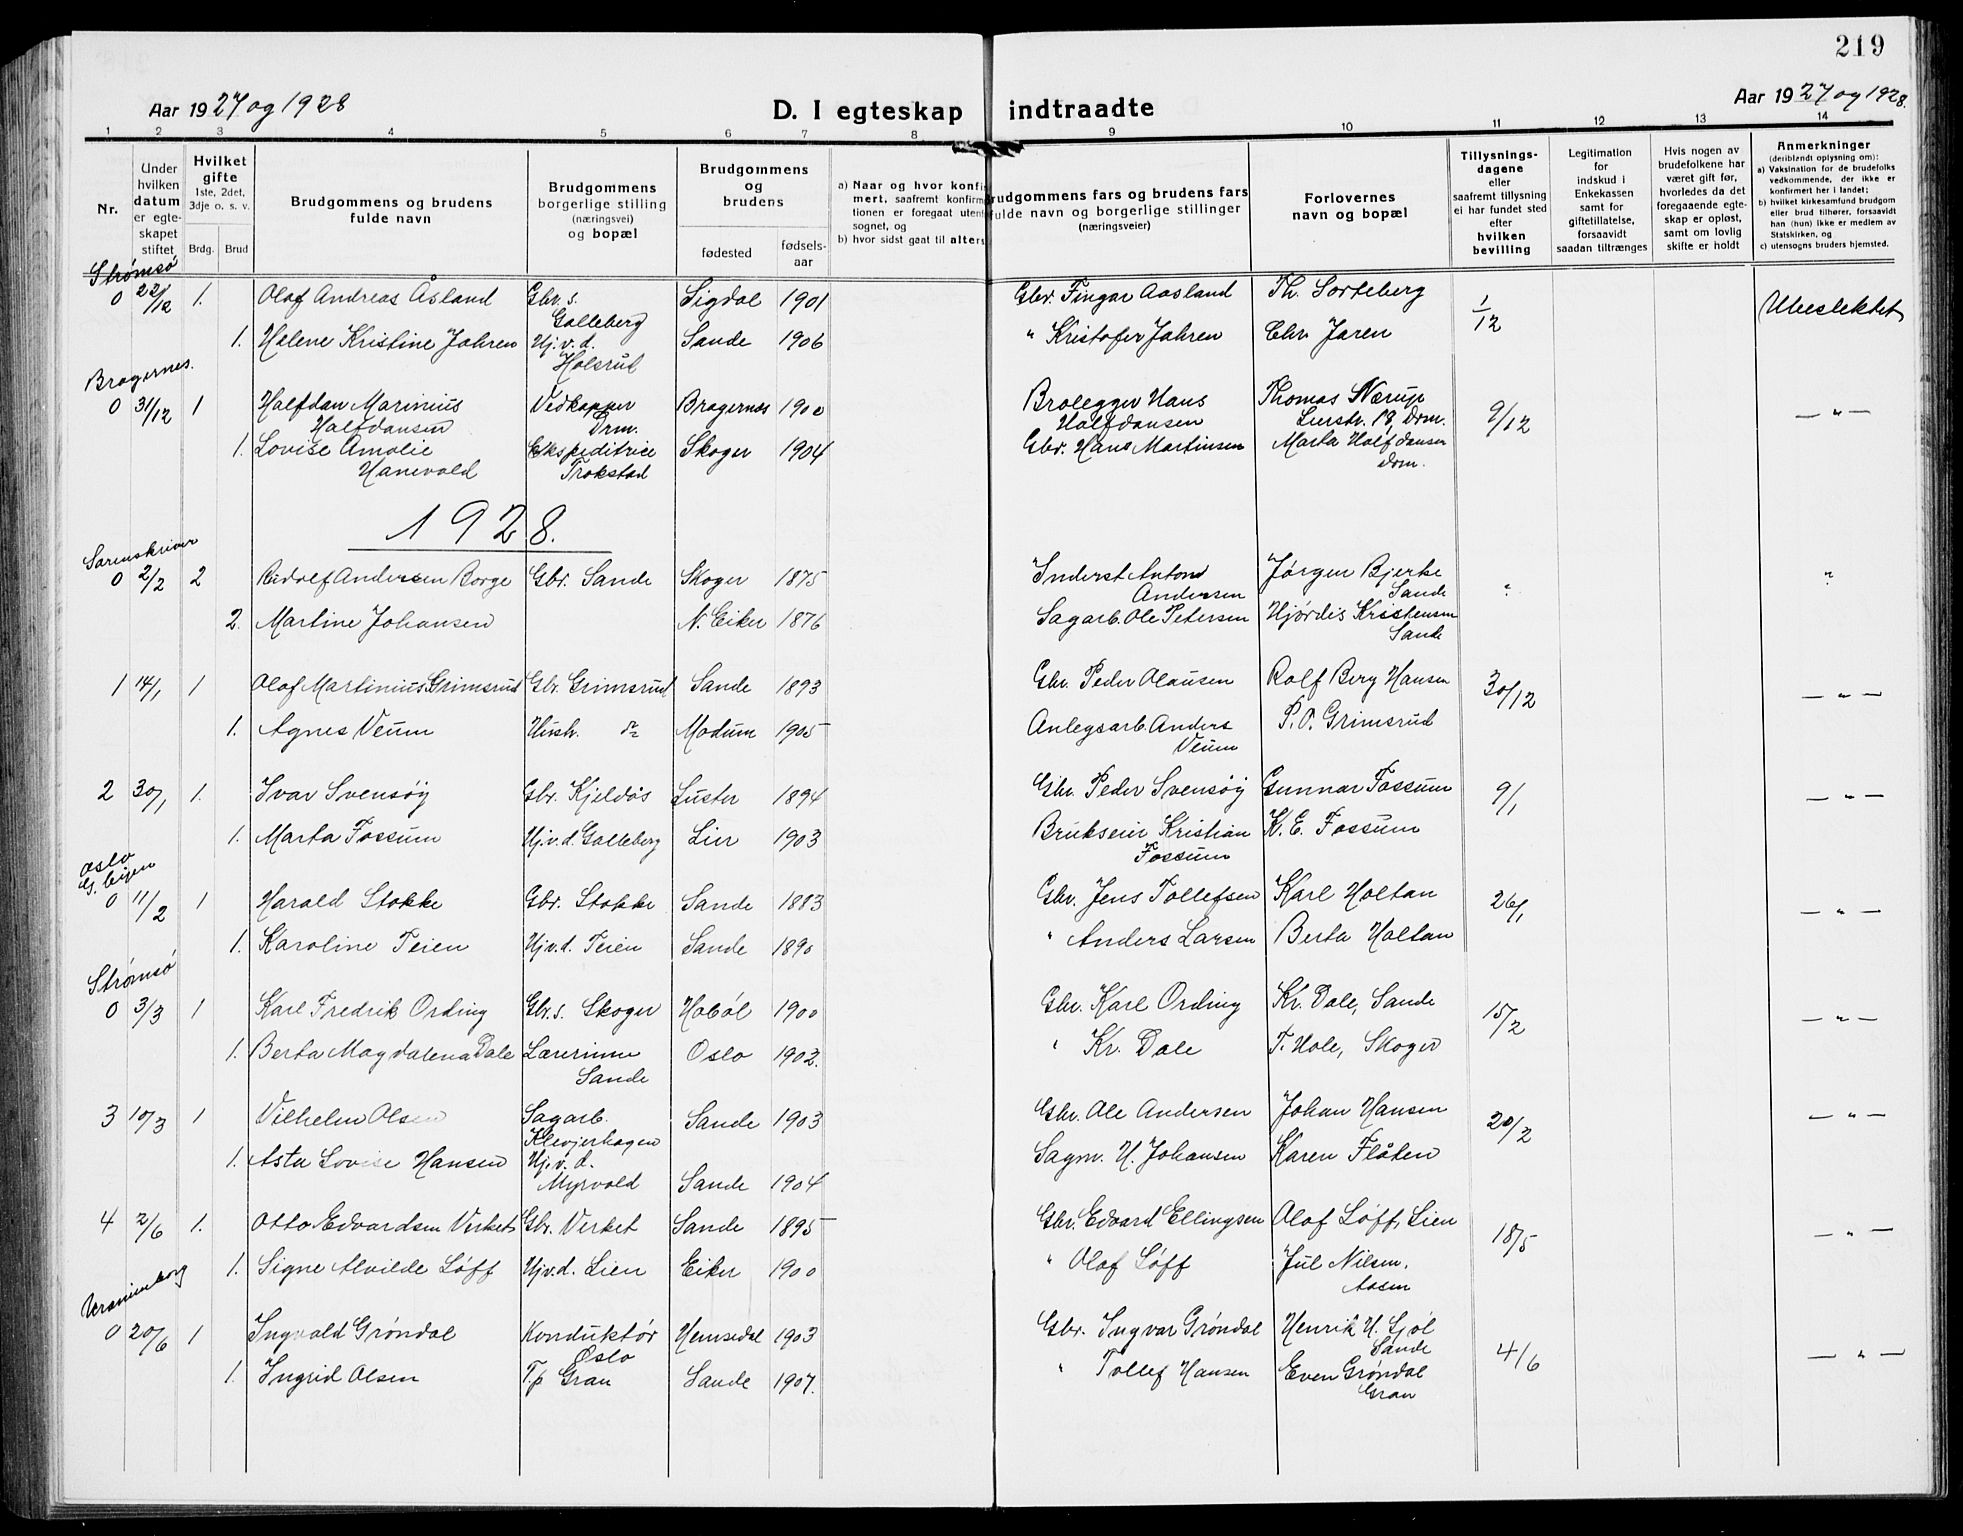 219
Aar 1927 og 1928
D. I egteskap indtraadte
Aar 1927 og 1928.
1 2 3 4 5 6 7 8 9 10 11 12 13 14
Nr.
Under hvilken datum er egteskapet stiftet
Hvilket gifte 1ste, 2det, 3dje o. s. v.
Brdg. Brud
Brudgommens og brudens fulde navn
Brudgommens borgerlige stilling (næringsvei) og bopæl
Brudgommens og brudens
fødested fødselsaar
a) Naar og hvor konfirmert, saafremt konfirmationen er foregaat utenfor sognet, og
b) hvor sidst gaat til alters
Brudgommens fars og brudens fars fulde navn og borgerlige stillinger (næringsveier)
Forlovernes navn og bopæl
Tillysningsdagene eller saafremt tillysning ei har fundet sted efter hvilken bevilling
Legitimation for indskud i Enkekassen samt for giftetillatelse, forsaavidt saadan tiltrænges
Hvis nogen av brudefolkene har været gift før, hvorledes da det foregaaende egteskap er opløst, samt om lovlig skifte er holdt
Anmerkninger (deriblandt oplysning om):
a) Vaksination for de brudefolks vedkommende, der ikke er konfirmert her i landet;
b) hvilket kirkesamfund brudgom eller brud tilhører, forsaavidt han (hun) ikke er medlem av Statskirken, og
c) utensogns bruders hjemsted.
Strømsø
0 22/12 1. Olaf Andreas Åsland Gbr.s. Galleberg Sigdal 1901 Gbr. Fingar Aasland Th. Sorteberg 1/12 Ubeslektet
1. Helene Kristine Jahren Hj.v.d. Holsrud Sande 1906 " Kristofer Jahren Chr. Jaren
Bragernes.
0 31/12 1 Halfdan Marinius Halfdansen Vedkapper Drm. Bragernes 1900 Brolegger Hans Halfdansen Thomas Nærup Lierstr. 18, Drm. 9/12 — " —
1. Lovise Amalie Hanevold Ekspeditrice Trokstad Skoger 1904 Gbr. Hans Martinsen Marta Halfdansen Drm.
1928.
Sorenskriver
0 2/2 2 Andersen Borge Gbr. Sande Skoger 1875 Inderst Anton Andersen Jørgen Bjerke Sande " "
2. Martine Johansen N. Eiker 1876 Sagarb. Ole Petersen Hjørdis Kristensen Sande
1 14/1 1 Olaf Martinius Grimsrud Gbr. Grimsrud Sande 1893 Gbr. Peder Olausen Rolf Berg Hansen 30/12 — " —
1. Agnes Veum Hush. Modum 1905 Anlegsarb. Anders Veum P. O. Grimsrud
2 30/1 1. Ivar Svensøy Gbr. Kjeldås Luster 1894 Gbr. Peder Svensøy Gunnar Fossum 9/1 — " —
1. Marta Fossum Hj.v.d. Galleberg Lier 1903 Brukseier Kristian Fossum K. E. Fossum
Oslo
0 11/2 1 Harald Stokke Gbr. Stokke Sande 1883 Gbr. Jens Tollefsen Karl Holtan 26/1 — " —
1. Karoline Teien Hj.v.d. Teien Sande 1890 " Anders Larsen Berta Holtan
Strømsø
0 3/3 1 Karl Fredrik Ording Gbr.s. Skoger Hobøl 1900 Gbr. Karl Ording Kr. Dale, Sande 15/2 — " —
1. Berta Magdalena Dale Lærerinne Sande Oslo 1902. " Kr. Dale T. Hole, Skoger
3 10/3 1 Vilhelm Olsen Sagarb. Klevjerhagen Sande 1903 Gbr. Ole Andersen Johan Hansen 20/2 — " —
1. Asta Lovise Hansen Hj.v.d. Myrvold Sande 1904 Sagm. H. Johansen Karen Flåten
4 2/6 1. Otto Edvardsen Verket Gbr. Verket Sande 1895 Gbr. Edvard Ellingsen Olaf Løff, Lien 18/5 — " —
1. Signe Alvilde Løff Hj.v.d. Lien Eiker 1900 " Olaf Løff Jul Nilsen, Aasen
Uranienborg
0 20/6 1 Ingvald Grøndal Konduktør Oslo Hemsedal 1903 Gbr. Ingvar Grøndal Henrik H. Gjøl Sande 4/6 — " —
1. Ingrid Olsen T.p Gran Sande 1907. " Tollef Hansen Even Grøndal Gran